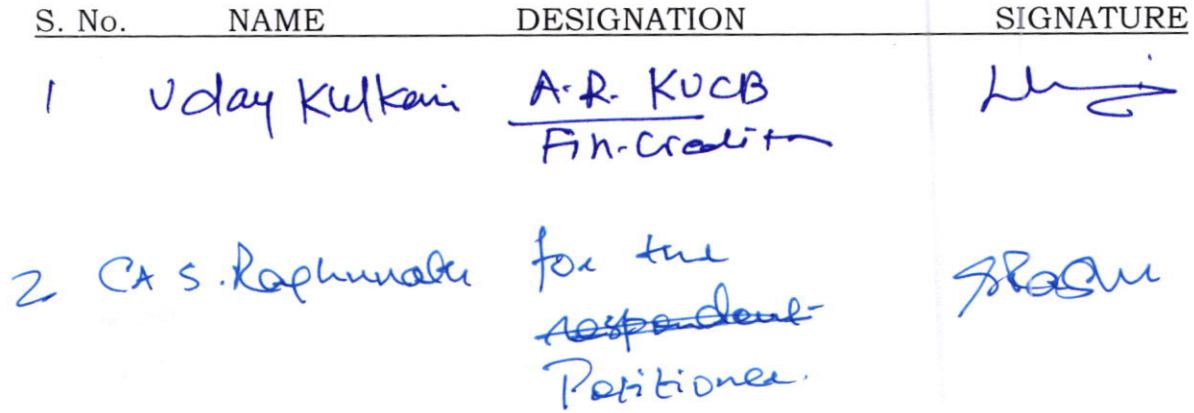 S. No. NAME DESIGNATION SIGNATURE
1 Uday Kulkarni A.R. KUCB
Fin-Creditor
2 CA S. Raghunath for the
respondent
Petitioner.